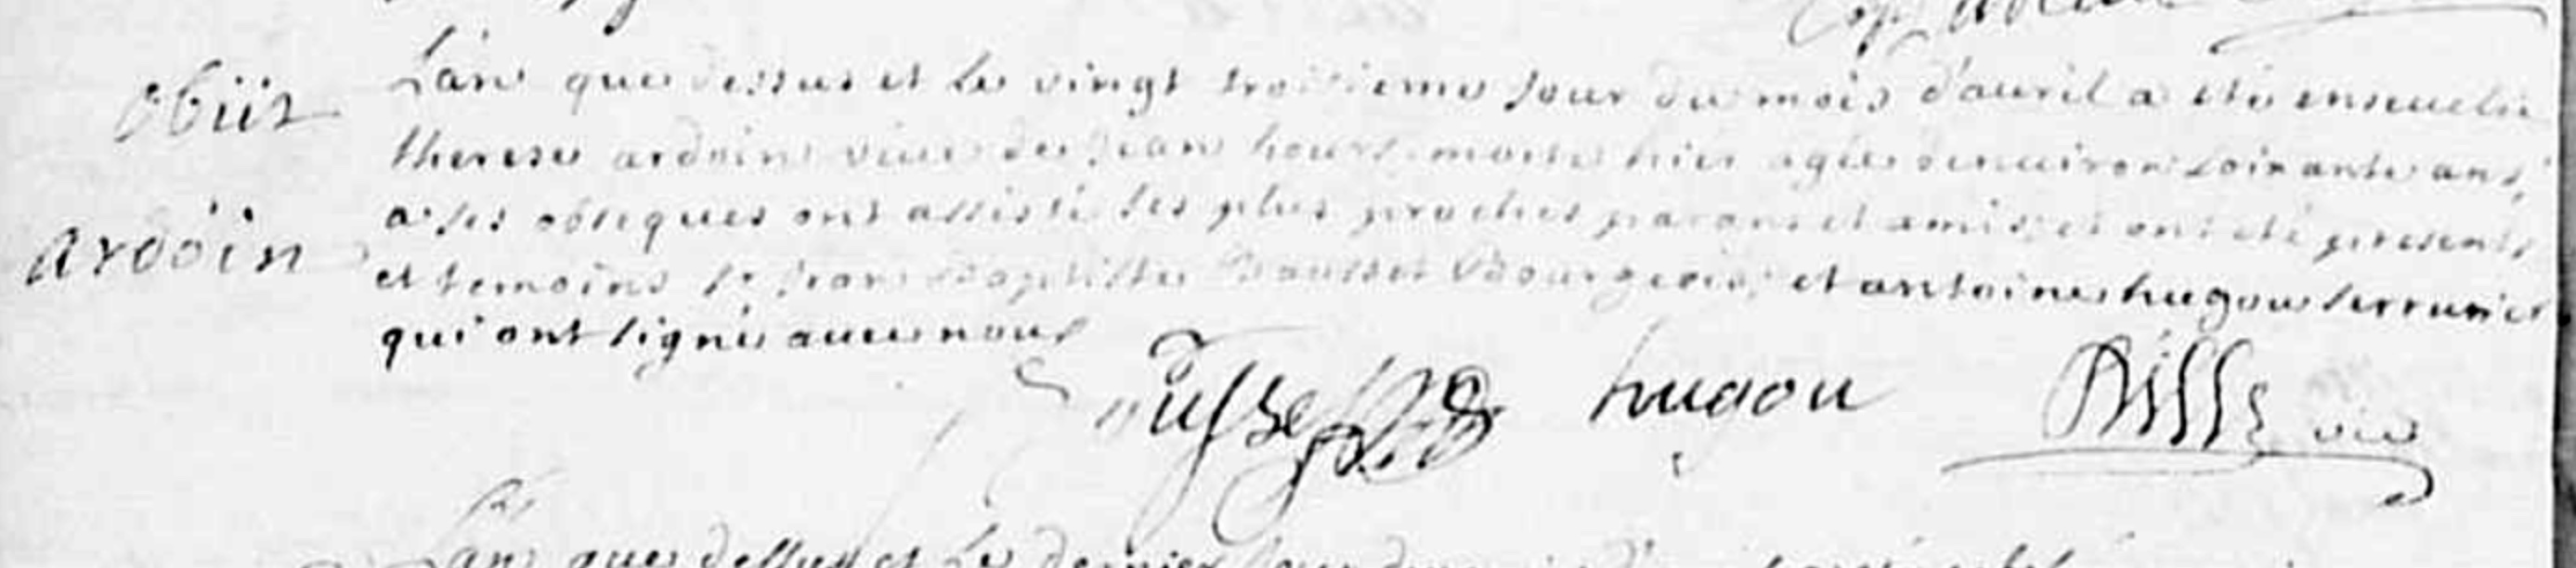 obiit
ardoin
L'an que dessus et le vingt troisieme jour du mois d'avril a eté enseuelie
therese ardoin veuve de jean hours morte hier agée d'enuiron soixante ans,
a ses obseques ont assisté ses plus proches parans et amis et ont eté presents
et temoins sr jean Baptiste Bausset Bourgeois, et antoine hugou serrurier
qui ont signé auec nous
hugou
vic
L'an que dessus et le dernier jour du mois